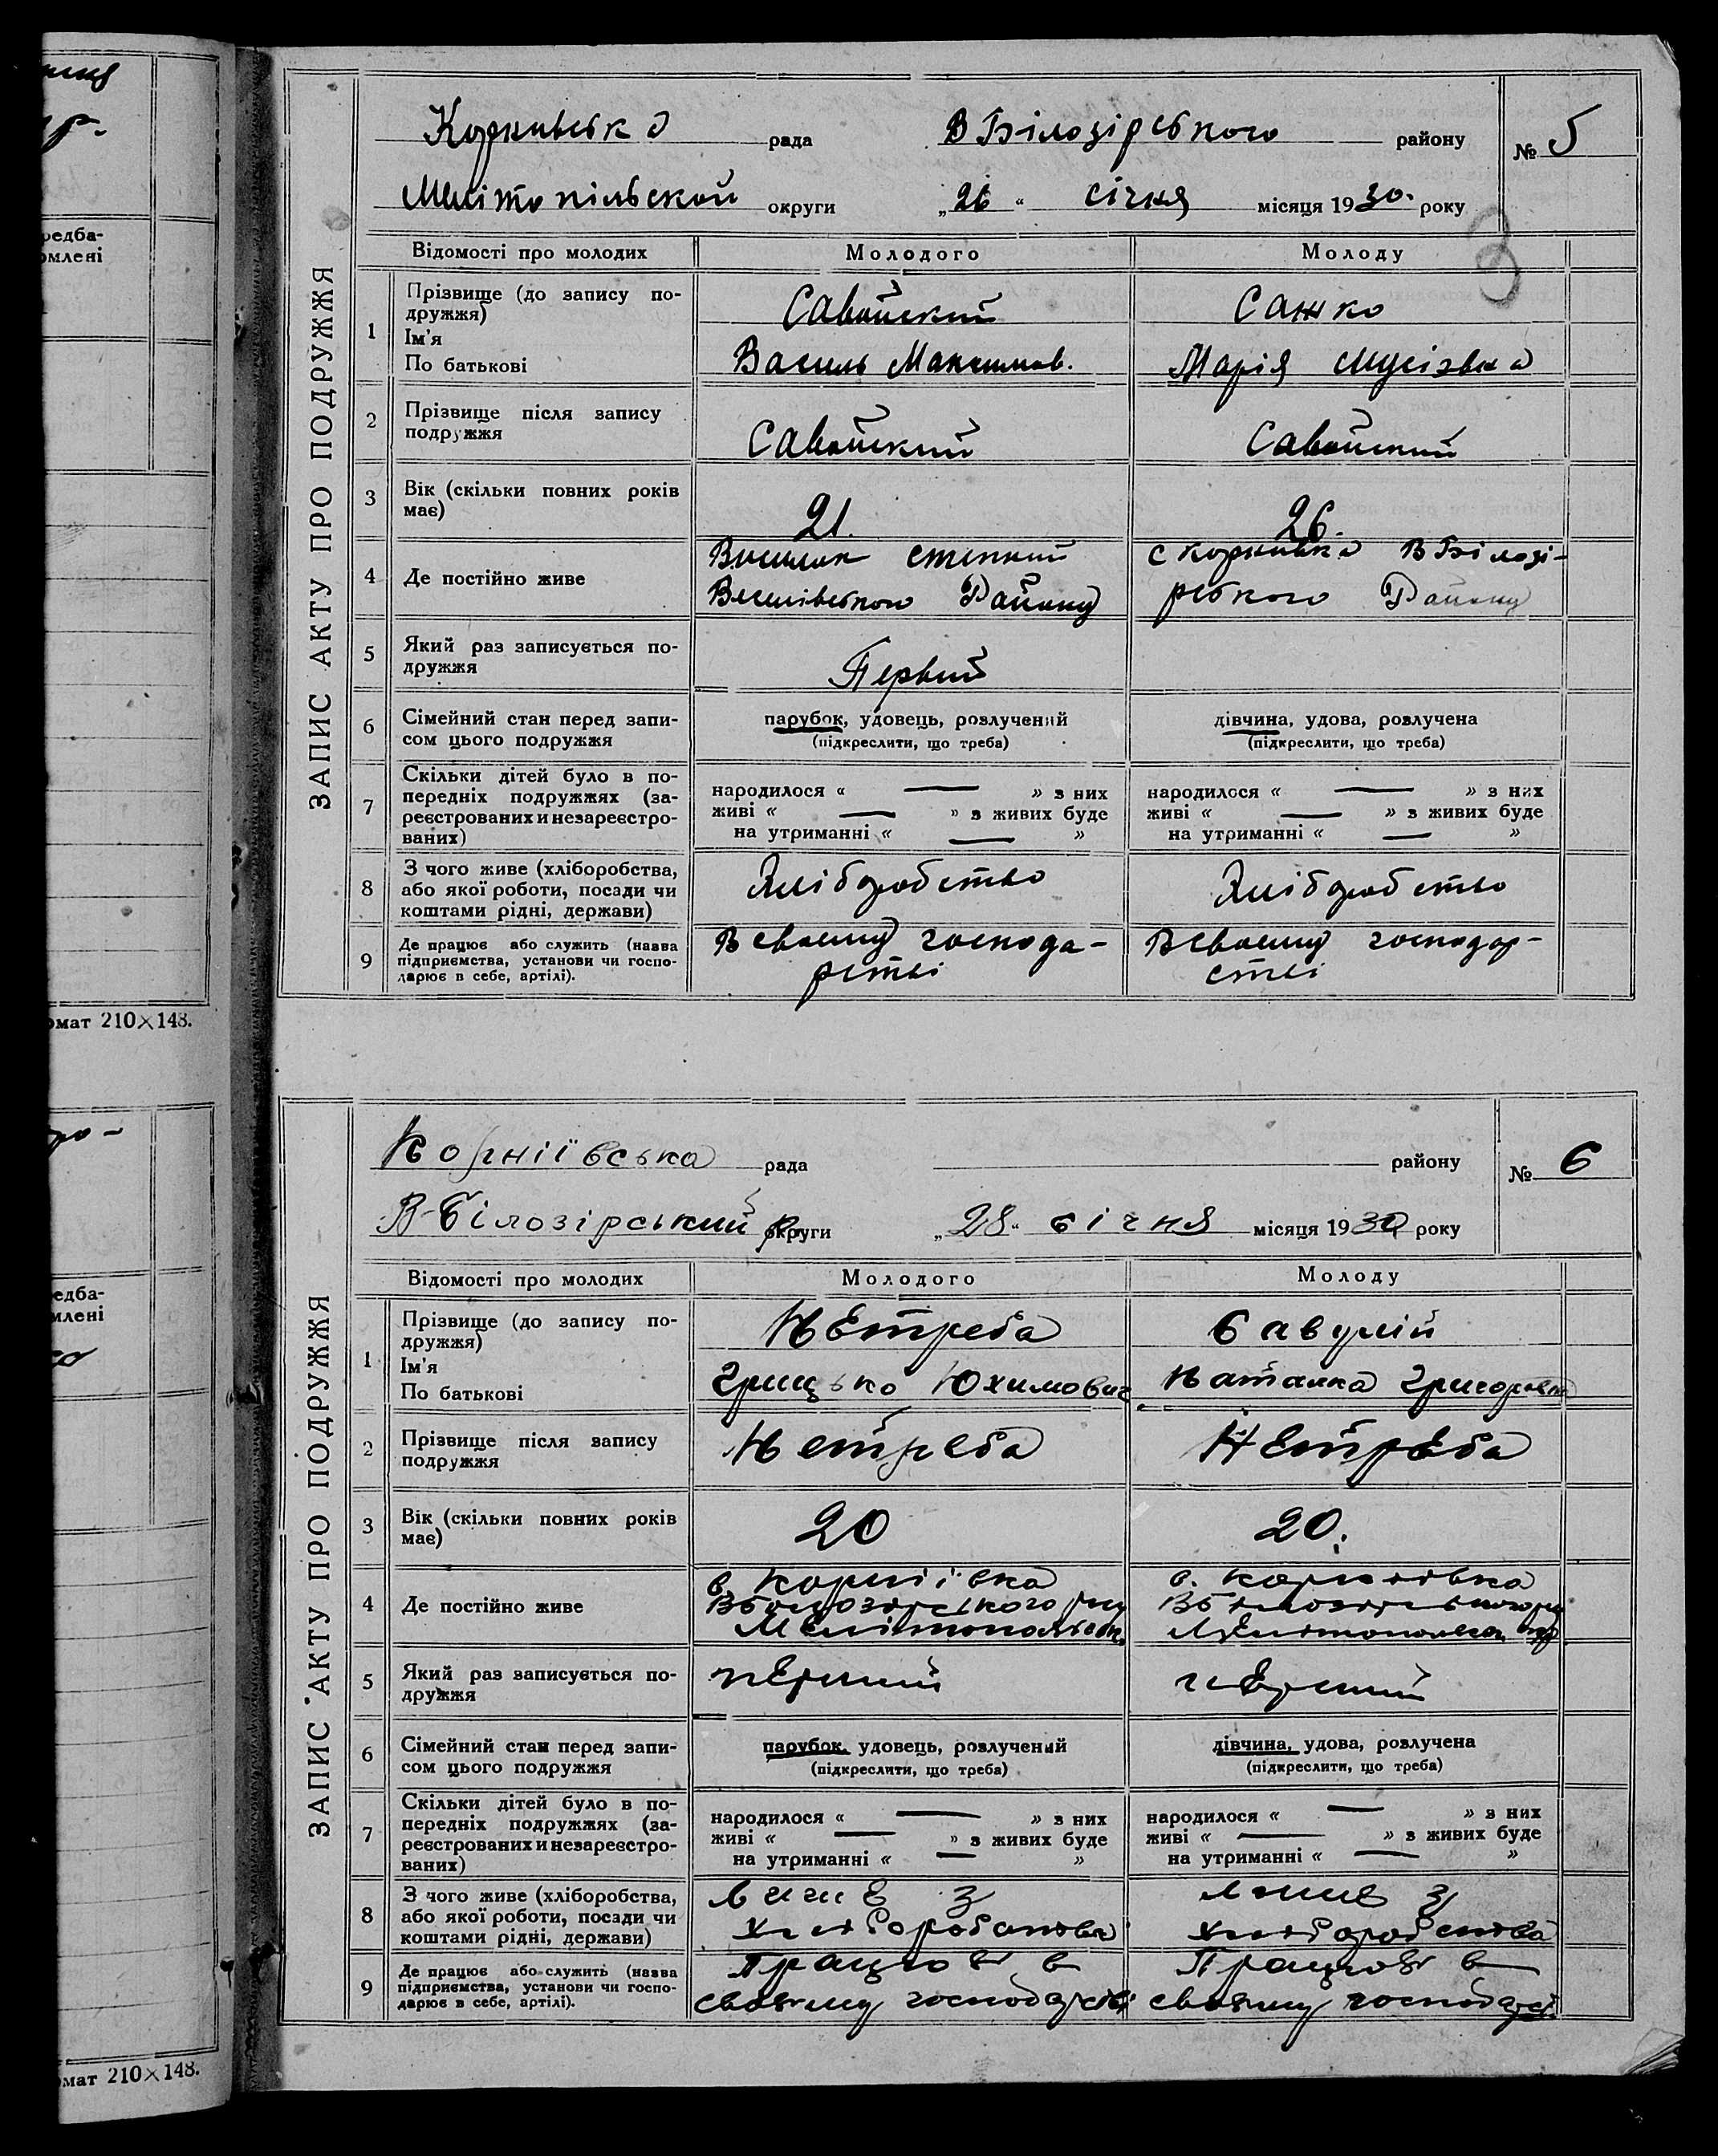 Корнивська рада В Білозірського району № 5
Мелітопільской округи „26“ січня місяця 1930. року
3
ЗАПИС АКТУ ПРО ПОДРУЖЖЯ
Відомості про молодих Молодого Молоду
1 Прізвище (до запису по-
дружжя) Савойский Сажко
Ім'я
По батькові Василь Максимов. Марія Мусієвна
2 Прізвище після запису
подружжя Савойский Савойский
3 Вік (скільки повних років
має) 21. 26.
4 Де постійно живе
степний с Корнивка В Білозі-
Веселівського Району рського Району
5 Який раз записується по-
дружжя Первий
6 Сімейний стан перед запи-
сом цього подружжя
парубок, удовець, розлучений дівчина, удова, розлучена
(підкреслити, що треба) (підкреслити, що треба)
7 Скільки дітей було в по-
передніх подружжях (за-
реєстрованих и незареєстро-
ваних)
народилося « — » з них народилося « — » з них
живі « — » з живих буде живі « — » з живих буде
на утриманні « — » на утриманні « — »
8 З чого живе (хліборобства,
або якої роботи, посади чи
коштами рідні, держави)
Хліборобство Хліборобство
9 Де працює або служить (назва
підприємства, установи чи госпо-
дарює в себе, артілі).
В своєму господа- В своєму господар-
рстві стві
Корніївська рада району № 6
В-Білозірський округи „28“ січня місяця 1930 року
ЗАПИС АКТУ ПРО ПОДРУЖЖЯ
Відомості про молодих Молодого Молоду
1 Прізвище (до запису по-
дружжя) Нетреба
Ім'я
По батькові Грицько Юхимович Наталка Григоровна
2 Прізвище після запису
подружжя Нетреба Нетреба
3 Вік (скільки повних років
має) 20 20.
4 Де постійно живе
с. Корніївка с. Корніївка
В Білозірського В Білозірського
5 Який раз записується по-
дружжя перший перший
6 Сімейний стан перед запи-
сом цього подружжя
парубок, удовець, розлучений дівчина, удова, розлучена
(підкреслити, що треба) (підкреслити, що треба)
7 Скільки дітей було в по-
передніх подружжях (за-
реєстрованих и незареєстро-
ваних)
народилося « — » з них народилося « — » з них
живі « — » з живих буде живі « — » з живих буде
на утриманні « — » на утриманні « — »
8 З чого живе (хліборобства,
або якої роботи, посади чи
коштами рідні, держави)
живе з живе з
хліборобства хліборобства
9 Де працює або служить (назва
підприємства, установи чи госпо-
дарює в себе, артілі).
Працює в Працює в
своєму господарстві своєму
редба-
омлені
омат 210×148.
едба-
млені
мат 210×148.